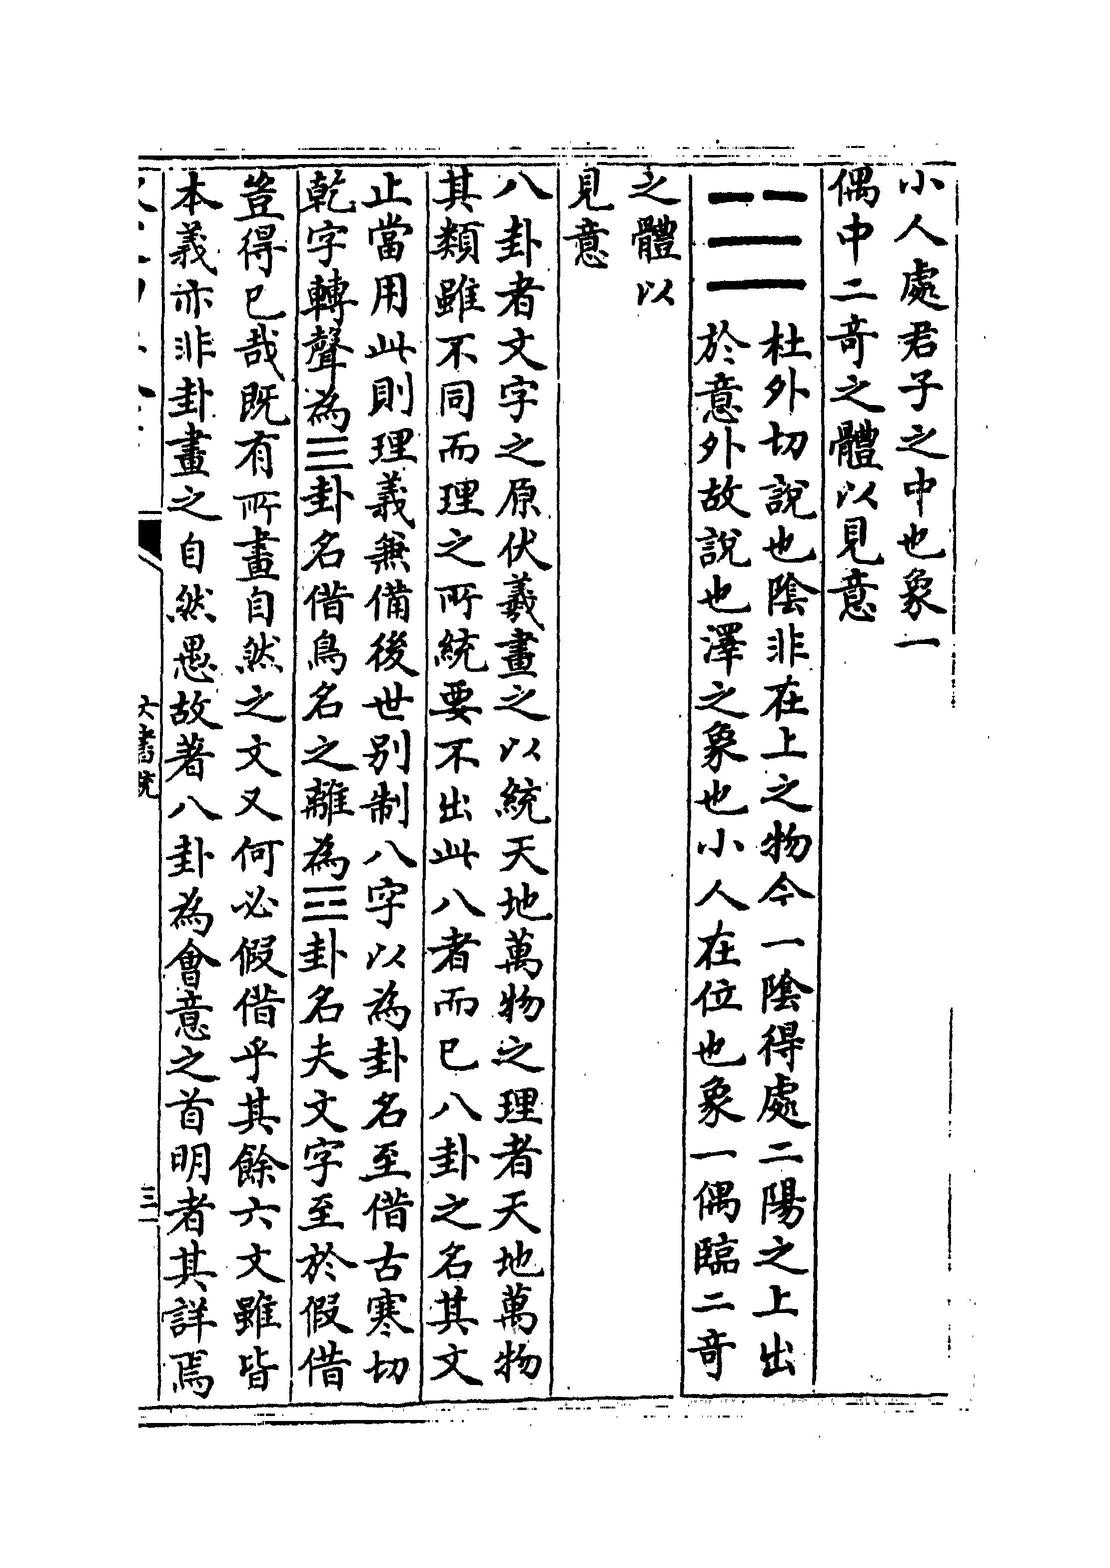 小人處君子之中也象一
偶中二奇之體以見意
☱
杜外切說也陰非在上之物今一陰得處二陽之上出
於意外故說也澤之象也小人在位也象一偶臨二奇
之體以
見意
八卦者文字之原伏羲畫之以統天地萬物之理者天地萬物
其類雖不同而理之所統要不出此八者而已八卦之名其文
止當用此則理義兼備後世别制八字以為卦名至借古寒切
乾字轉聲為☰卦名借鳥名之離為☲卦名夫文字至於假借
豈得已哉既有所畫自然之文又何必假借乎其餘六文雖皆
本義亦非卦畫之自然愚故著八卦為會意之首明者其詳焉
六書統
三